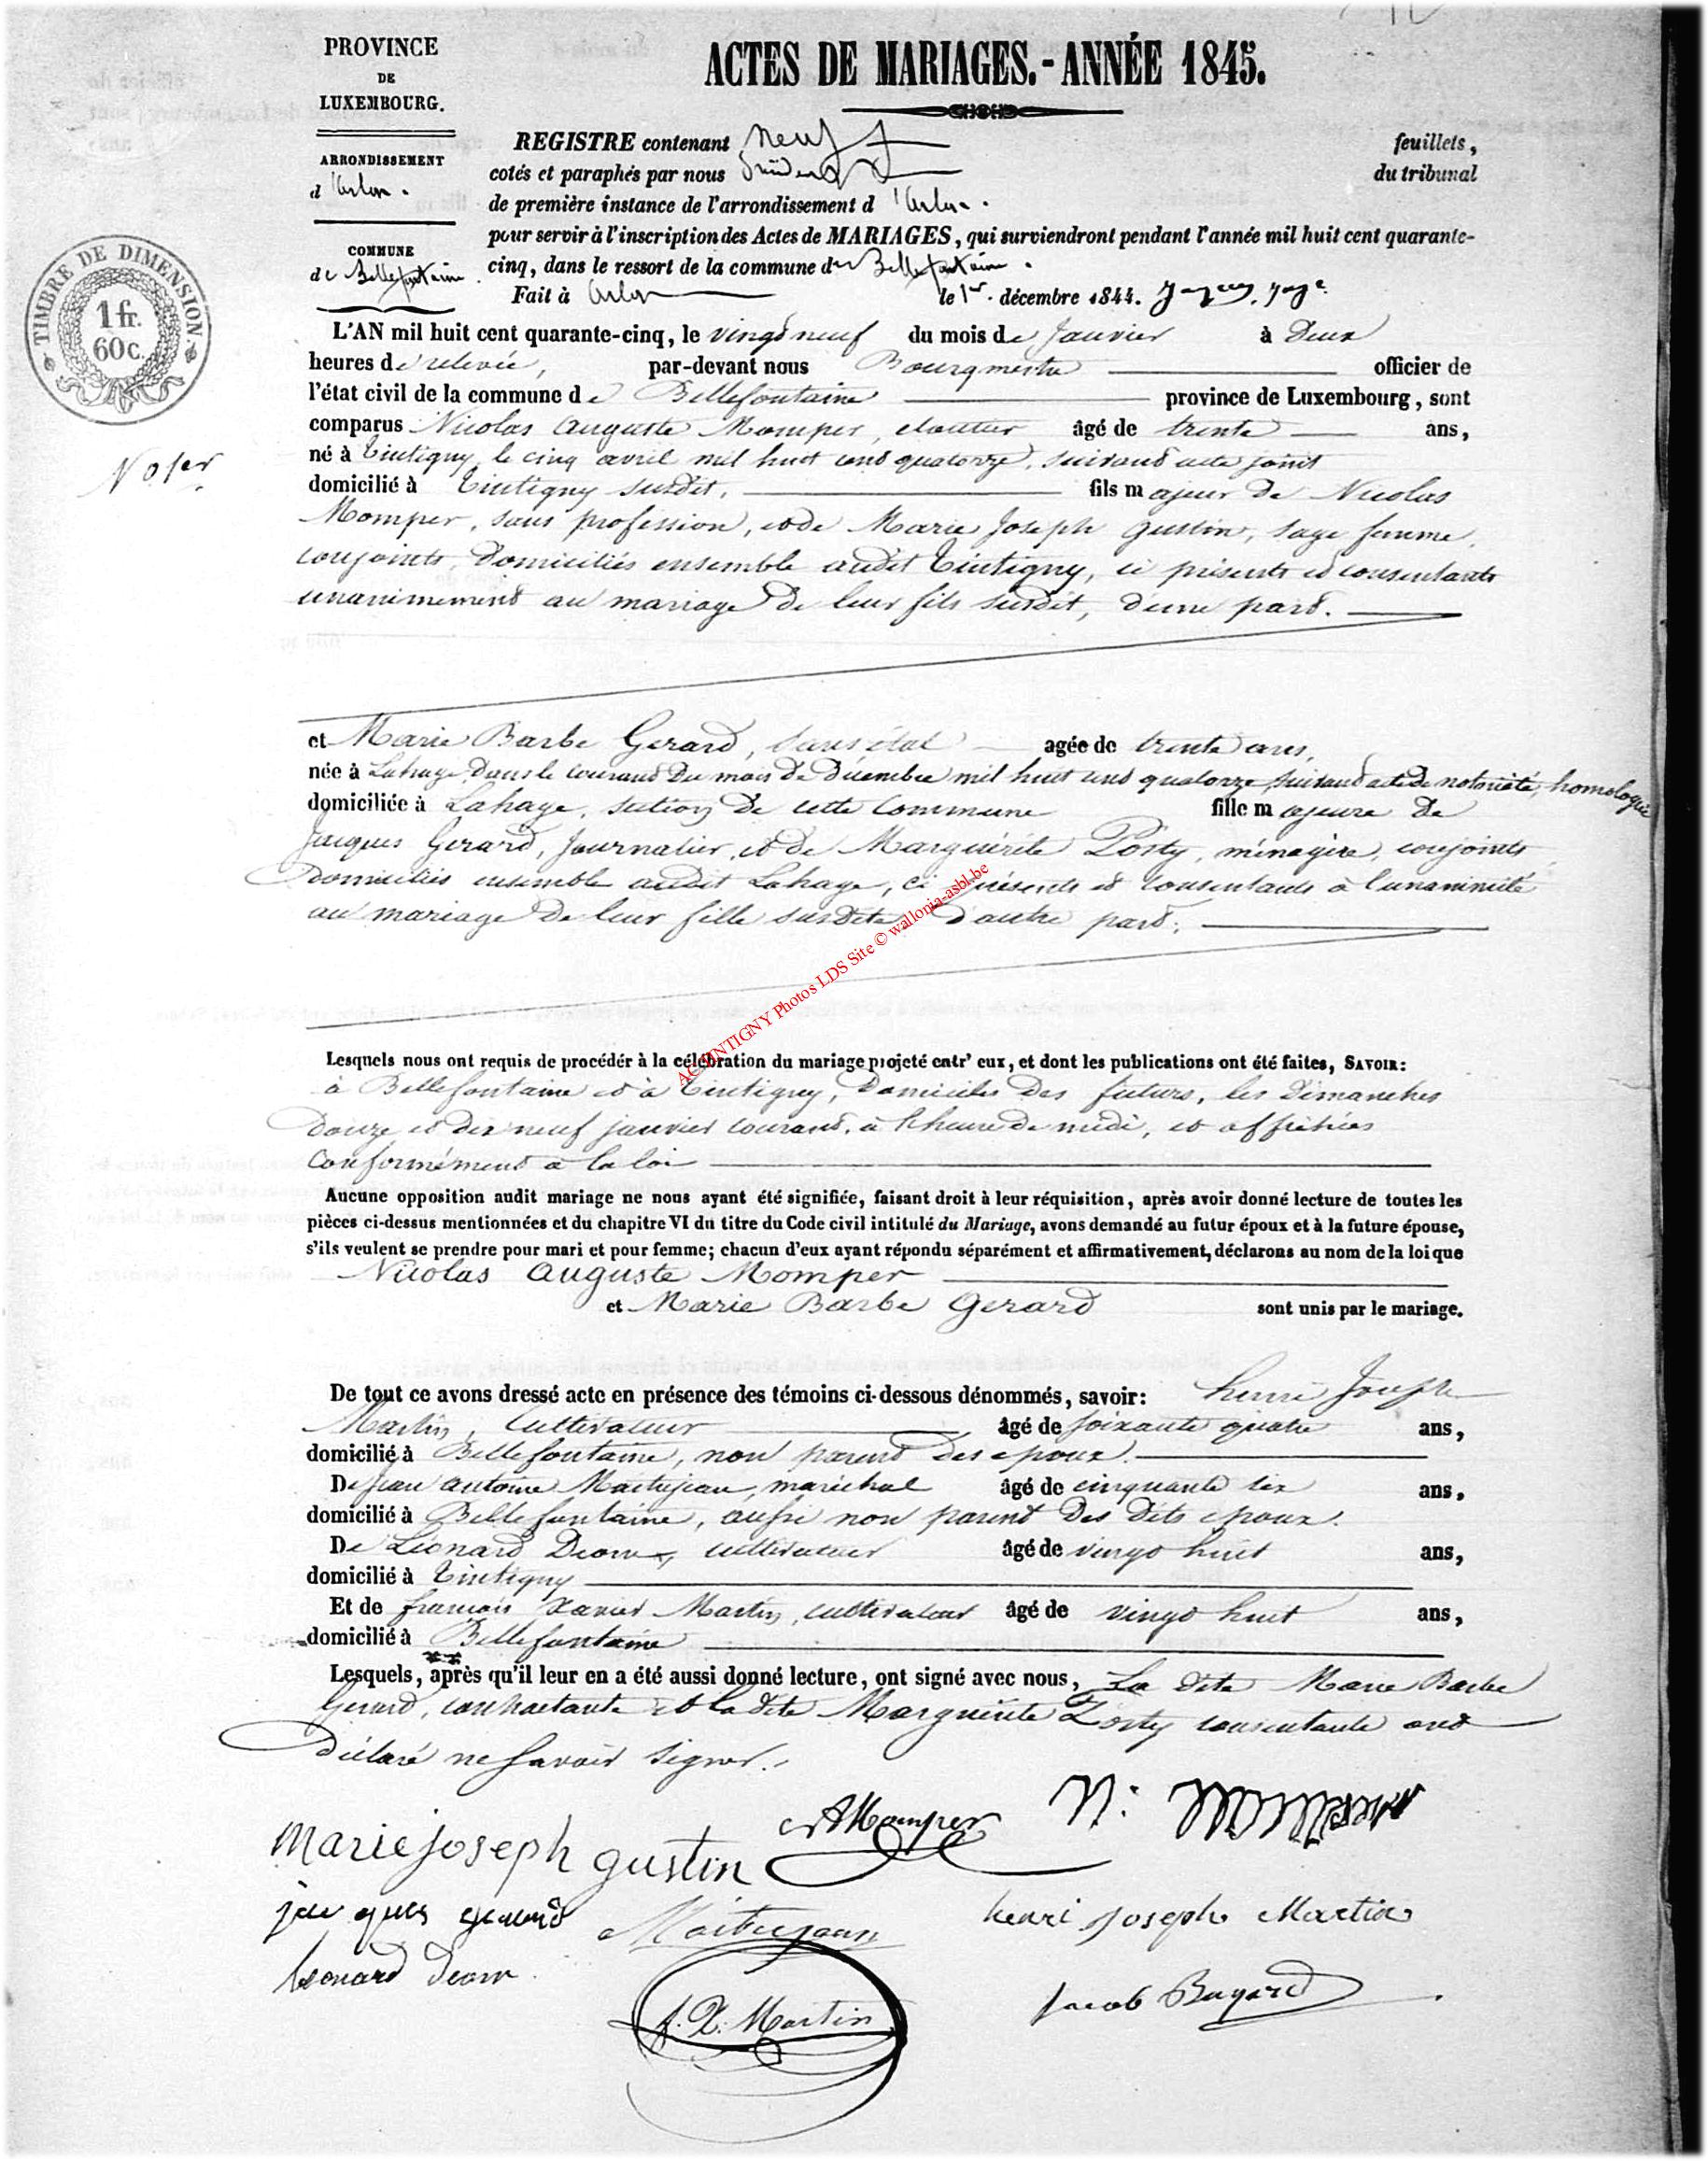 PROVINCE
DE
LUXEMBOURG.
ARRONDISSEMENT
d'Arlon.
COMMUNE
de Bellefontaine.
TIMBRE DE DIMENSION.
1 fr.
60 c.
ACTES DE MARIAGES.-ANNÉE 1845.
REGISTRE contenant neuf feuillets,
cotés et paraphés par nous du tribunal
de première instance de l'arrondissement d'Arlon.
pour servir à l'inscription des Actes de MARIAGES, qui surviendront pendant l'année mil huit cent quarante-
cinq, dans le ressort de la commune de Bellefontaine.
Fait à Arlon le 1er. décembre 1844.
L'AN mil huit cent quarante-cinq, le vingt neuf du mois de Janvier à Deux
heures de relevée, par-devant nous Bourgmestre officier de
l'état civil de la commune de Bellefontaine province de Luxembourg, sont
comparus Nicolas Auguste Momper, cloutier âgé de trente ans,
No 1er
né à Tintigny le cinq avril mil huit cent quatorze, suivant acte joint
domicilié à Tintigny susdit, fils majeur de Nicolas
Momper, sans profession, et de Marie Joseph Gustin, sage femme,
conjoints, domiciliés ensemble audit Tintigny, ci présents et consentants
unanimement au mariage de leur fils susdit, d'une part.
et Marie Barbe Gerard, sans état agée de trente ans,
née à Lahage, dans le courant du mois de Décembre mil huit cent quatorze, suivant acte de notoriété, homologué
domiciliée à Lahage, section de cette Commune fille majeure de
Jacques Gerard, Journalier, et de Marguérite Posty, ménagère, conjoints
Domiciliés ensemble audit Lahage, ci présents et consentants à l'unanimité
au mariage de leur fille susdite, d'autre part.
AC TINTIGNY Photos LDS Site © wallonia-asbl.be
Lesquels nous ont requis de procéder à la célébration du mariage projeté entr' eux, et dont les publications ont été faites, SAVOIR:
à Bellefontaine et à Tintigny, Domiciles des futurs, les Dimanches
Douze et dix neuf janvier courant, à l'heure de midi, et affichées
Conformément à la loi
Aucune opposition audit mariage ne nous ayant été signifiée, faisant droit à leur réquisition, après avoir donné lecture de toutes les
pièces ci-dessus mentionnées et du chapitre VI du titre du Code civil intitulé du Mariage, avons demandé au futur époux et à la future épouse,
s'ils veulent se prendre pour mari et pour femme; chacun d'eux ayant répondu séparément et affirmativement, déclarons au nom de la loi que
Nicolas Auguste Momper
et Marie Barbe Gerard sont unis par le mariage.
De tout ce avons dressé acte en présence des témoins ci-dessous dénommés, savoir: henri Joseph
Martin, Cultivateur âgé de soixante quatre ans,
domicilié à Bellefontaine, non parent des epoux.
De Jean Antoine Maitrejean, maréchal âgé de cinquante six ans,
domicilié à Bellefontaine, aussi non parent Des Dits epoux.
De Léonard Deom, cultivateur âgé de vingt huit ans,
domicilié à Tintigny
Et de françois Xavier Martin, cultivateur âgé de vingt huit ans,
domicilié à Bellefontaine
Lesquels, après qu'il leur en a été aussi donné lecture, ont signé avec nous, La dite Marie Barbe
Gerard, contractante et la dite Marguérite Posty consentante ont
Déclaré ne Savoir signer.
Marie joseph gustin
AMomper
N: Momper
jacques gerard
Maitrejean
henri Joseph Martin
Léonard Deom
f. X. Martin
Jacob Bugard